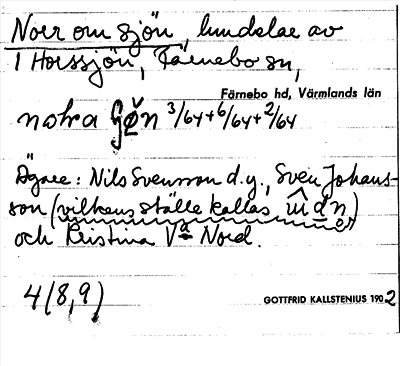 Norr om sjön, lundelae av
1 Horssjön, Färnebo sn,
Färnebo hd, Värmlands län
norra 3/64+6/64+2/64
Ägare: Nils Svensson d.y., Sven Johans-
son (vilkens ställe kallas
och Kristina Va Nord.
4(8,9)
GOTTFRID KALLSTENIUS 1902